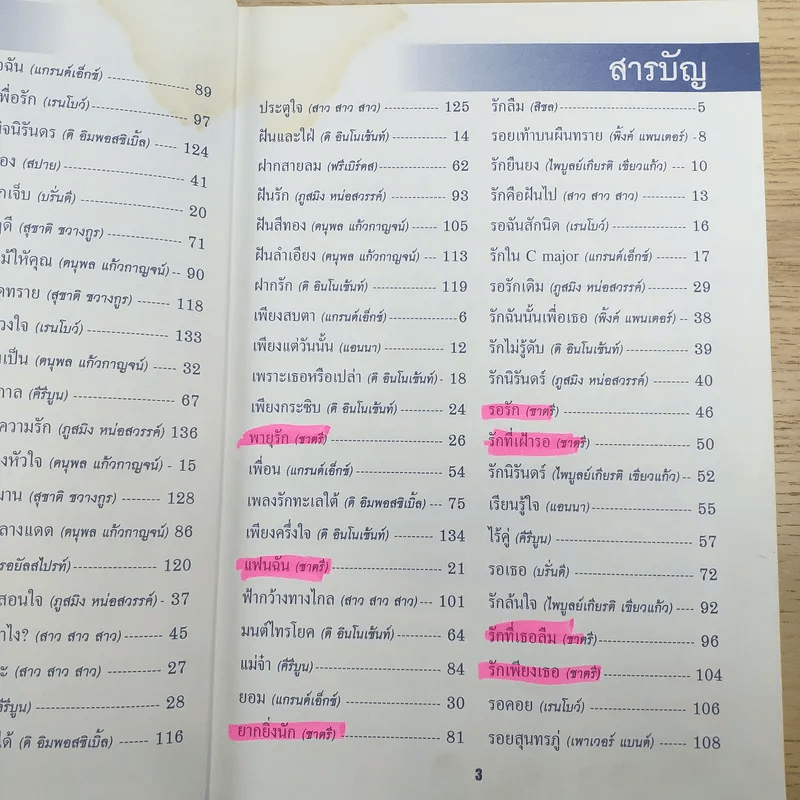 สารบัญ
ฉัน (แกรนด์เอ็กซ์) 89
เพื่อรัก (เรนโบว์) 97
นิจนิรันดร (ดิ อิมพอสซิเบิ้ล) 124
(สปาย) 41
เจ็บ (บรั่นดี) 20
ดี (สุชาติ ชวางกูร) 71
ให้คุณ (ดนุพล แก้วกาญจน์) 90
ทราย (สุชาติ ชวางกูร) 118
ดวงใจ (เรนโบว์) 133
เป็น (ดนุพล แก้วกาญจน์) 32
กาล (คีรีบูน) 67
ความรัก (ภูสมิง หน่อสวรรค์) 136
หัวใจ (ดนุพล แก้วกาญจน์) 15
(สุชาติ ชวางกูร) 128
กลางแดด (ดนุพล แก้วกาญจน์) 86
รอยัลสไปรท์) 120
สอนใจ (ภูสมิง หน่อสวรรค์) 37
ไง? (สาว สาว สาว) 45
(สาว สาว สาว) 27
คีรีบูน) 28
ได้ (ดิ อิมพอสซิเบิ้ล) 116
ประตูใจ (สาว สาว สาว) 125
ฝันและใฝ่ (ดิ อินโนเซ้นท์) 14
ฝากสายลม (ฟรีเบิร์ดส) 62
ฝันรัก (ภูสมิง หน่อสวรรค์) 93
ฝันสีทอง (ดนุพล แก้วกาญจน์) 105
ฝันลำเอียง (ดนุพล แก้วกาญจน์) 113
ฝากรัก (ดิ อินโนเซ้นท์) 119
เพียงสบตา (แกรนด์เอ็กซ์) 6
เพียงแต่วันนั้น (แอนนา) 12
เพราะเธอหรือเปล่า (ดิ อินโนเซ้นท์) 18
เพียงกระซิบ (ดิ อินโนเซ้นท์) 24
พายุรัก (ชาตรี) 26
เพื่อน (แกรนด์เอ็กซ์) 54
เพลงรักทะเลใต้ (ดิ อิมพอสซิเบิ้ล) 75
เพียงครึ่งใจ (ดิ อินโนเซ้นท์) 134
แฟนฉัน (ชาตรี) 21
ฟ้ากว้างทางไกล (สาว สาว สาว) 101
มนต์ไทรโยค (ดิ อินโนเซ้นท์) 64
แม่จ๋า (คีรีบูน) 84
ยอม (แกรนด์เอ็กซ์) 30
ยากยิ่งนัก (ชาตรี) 81
รักลืม (สิชล) 5
รอยเท้าบนผืนทราย (พิ้งค์ แพนเตอร์) 8
รักยืนยง (ไพบูลย์เกียรติ เขียวแก้ว) 10
รักคือฝันไป (สาว สาว สาว) 13
รอฉันสักนิด (เรนโบว์) 16
รักใน C major (แกรนด์เอ็กซ์) 17
รอรักเดิม (ภูสมิง หน่อสวรรค์) 29
รักฉันนั้นเพื่อเธอ (พิ้งค์ แพนเตอร์) 38
รักไม่รู้ดับ (ดิ อินโนเซ้นท์) 39
รักนิรันดร์ (ภูสมิง หน่อสวรรค์) 40
รอรัก (ชาตรี) 46
รักที่เฝ้ารอ (ชาตรี) 50
รักนิรันดร์ (ไพบูลย์เกียรติ เขียวแก้ว) 52
เรียนรู้ใจ (แอนนา) 55
ไร้คู่ (คีรีบูน) 57
รอเธอ (บรั่นดี) 72
รักล้นใจ (ไพบูลย์เกียรติ เขียวแก้ว) 92
รักที่เธอลืม (ชาตรี) 96
รักเพียงเธอ (ชาตรี) 104
รอคอย (เรนโบว์) 106
รอยสุนทรภู่ (เพาเวอร์ แบนด์) 108
3